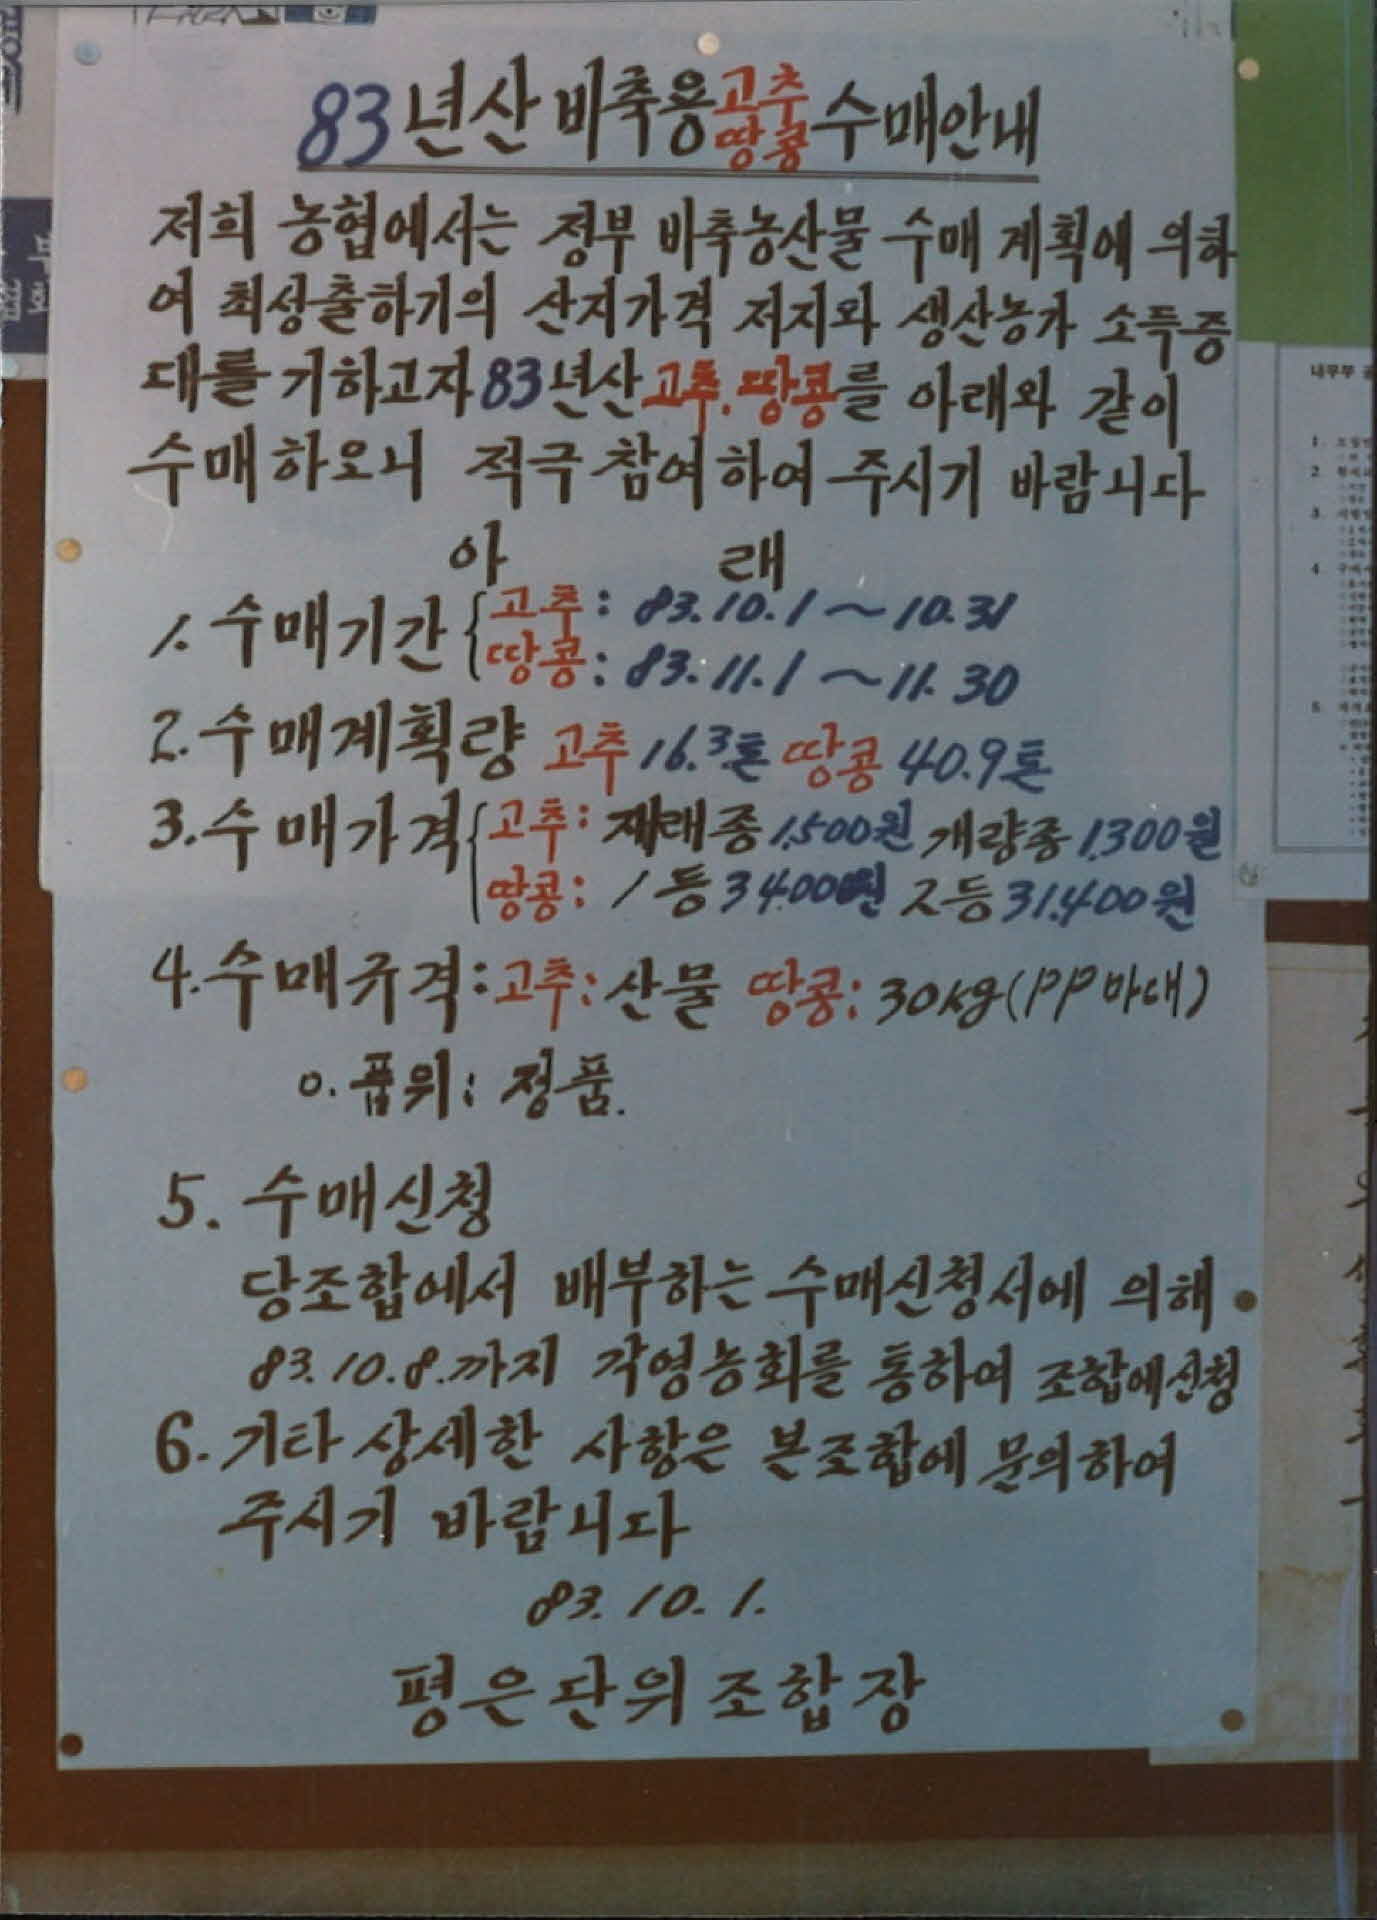 83년산 비축용 고추 땅콩 수매안내
저희 농협에서는 정부 비축농산물 수매 계획에 의하
여 최성출하기의 산지가격 저지와 생산농가 소득증
대를 기하고자 83년산 고추, 땅콩를 아래와 같이
수매하오니 적극 참여하여 주시기 바랍니다
아 래
1. 수매기간 { 고추: 83.10.1~10.31
땅콩: 83.11.1~11.30
2. 수매계획량 고추 16.3톤 땅콩 40.9톤
3. 수매가격 { 고추: 재래종 1,500원 개량종 1,300원
땅콩: 1등 34,000원 2등 31,400원
4. 수매규격: 고추: 산물 땅콩: 30kg(PP마대)
o. 품위: 정품.
5. 수매신청
당조합에서 배부하는 수매신청서에 의해
83.10.8.까지 각영농회를 통하여 조합에신청
6. 기타 상세한 사항은 본조합에 문의하여
주시기 바랍니다
83.10.1.
평은단위조합장
내무부